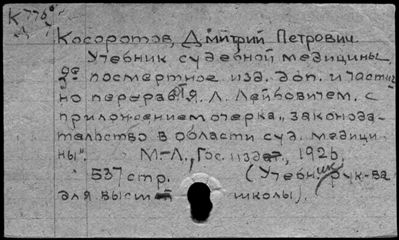 К 776
Косоротов, Дмитрий Петрович.
Учебник судебной медицины
2ое посмертное изд. доп. и частич
но перераб. Я. Л. Лейбовичем. с
приложением очерка „законода-
тельство в области суд. медици
ны".    М.-Л., Гос. издат., 1926.
537 стр.    (Учебники рук-ва
для высш    школы).